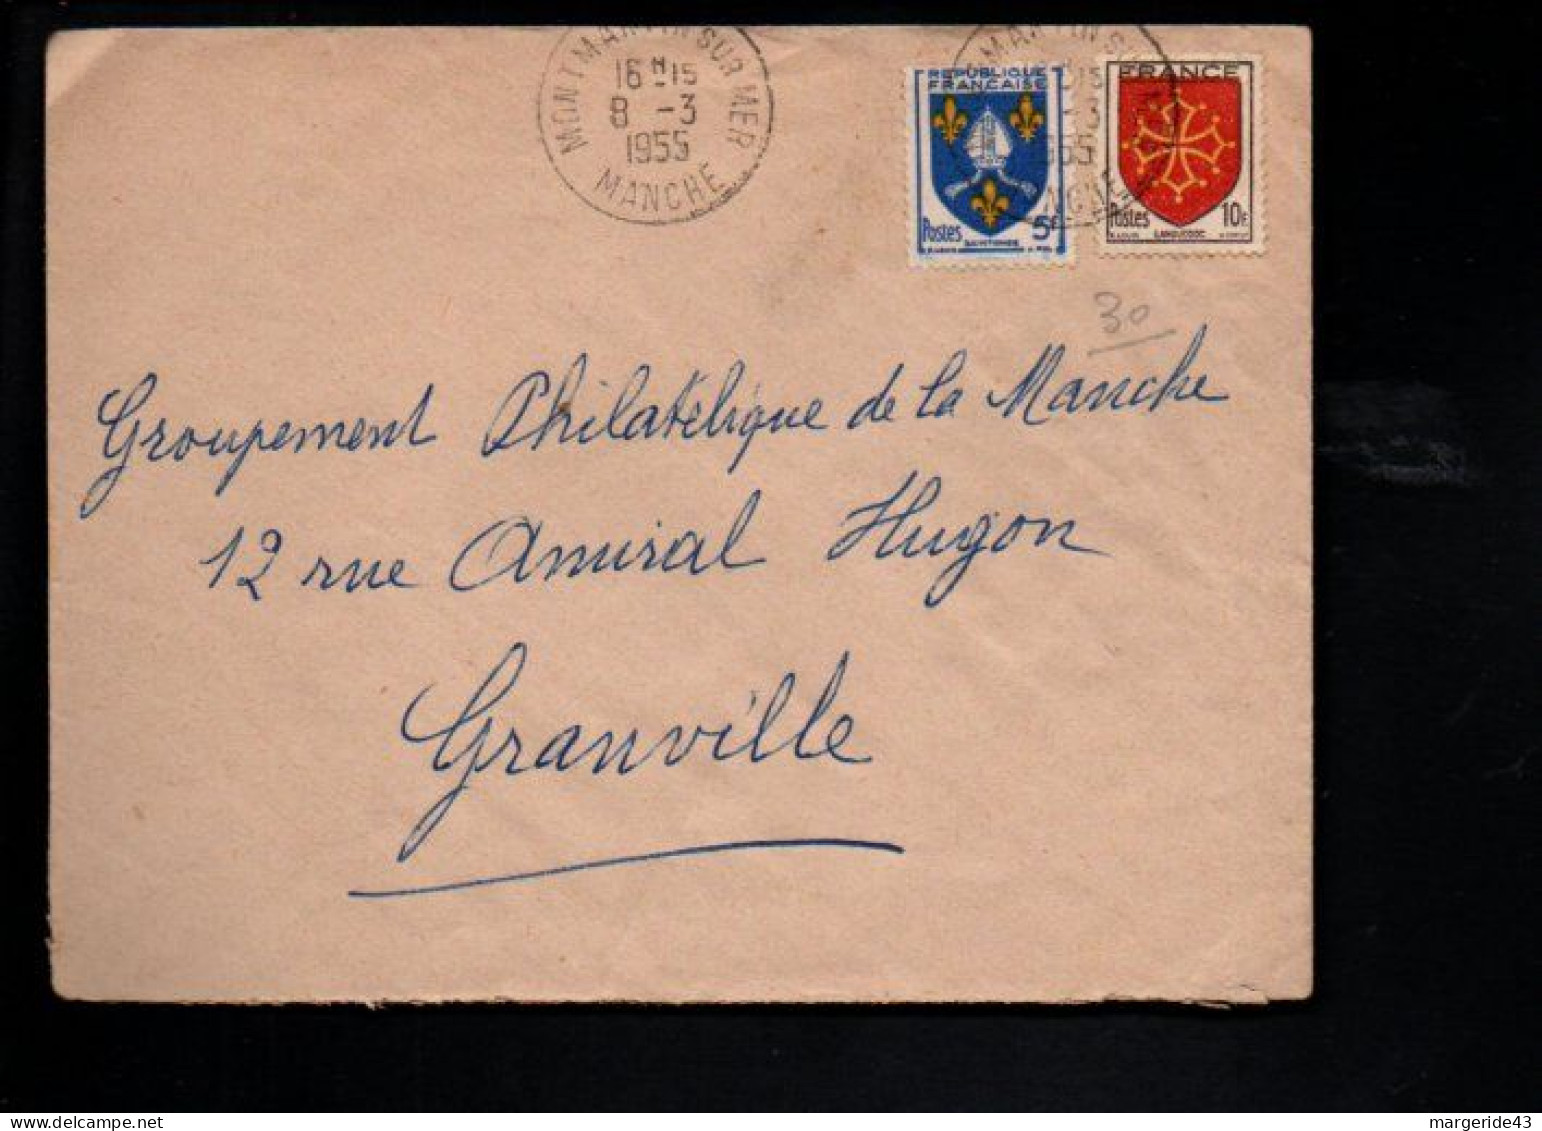 MONTMARTIN SUR MER
16H15
8 -3
1955
MANCHE
REPUBLIQUE
FRANÇAISE
Postes 5F
SAINTONGE
FRANCE
Postes 10F
LANGUEDOC
30
Groupement Philatélique de la Manche
12 rue Amiral Hugon
Granville
margeride43